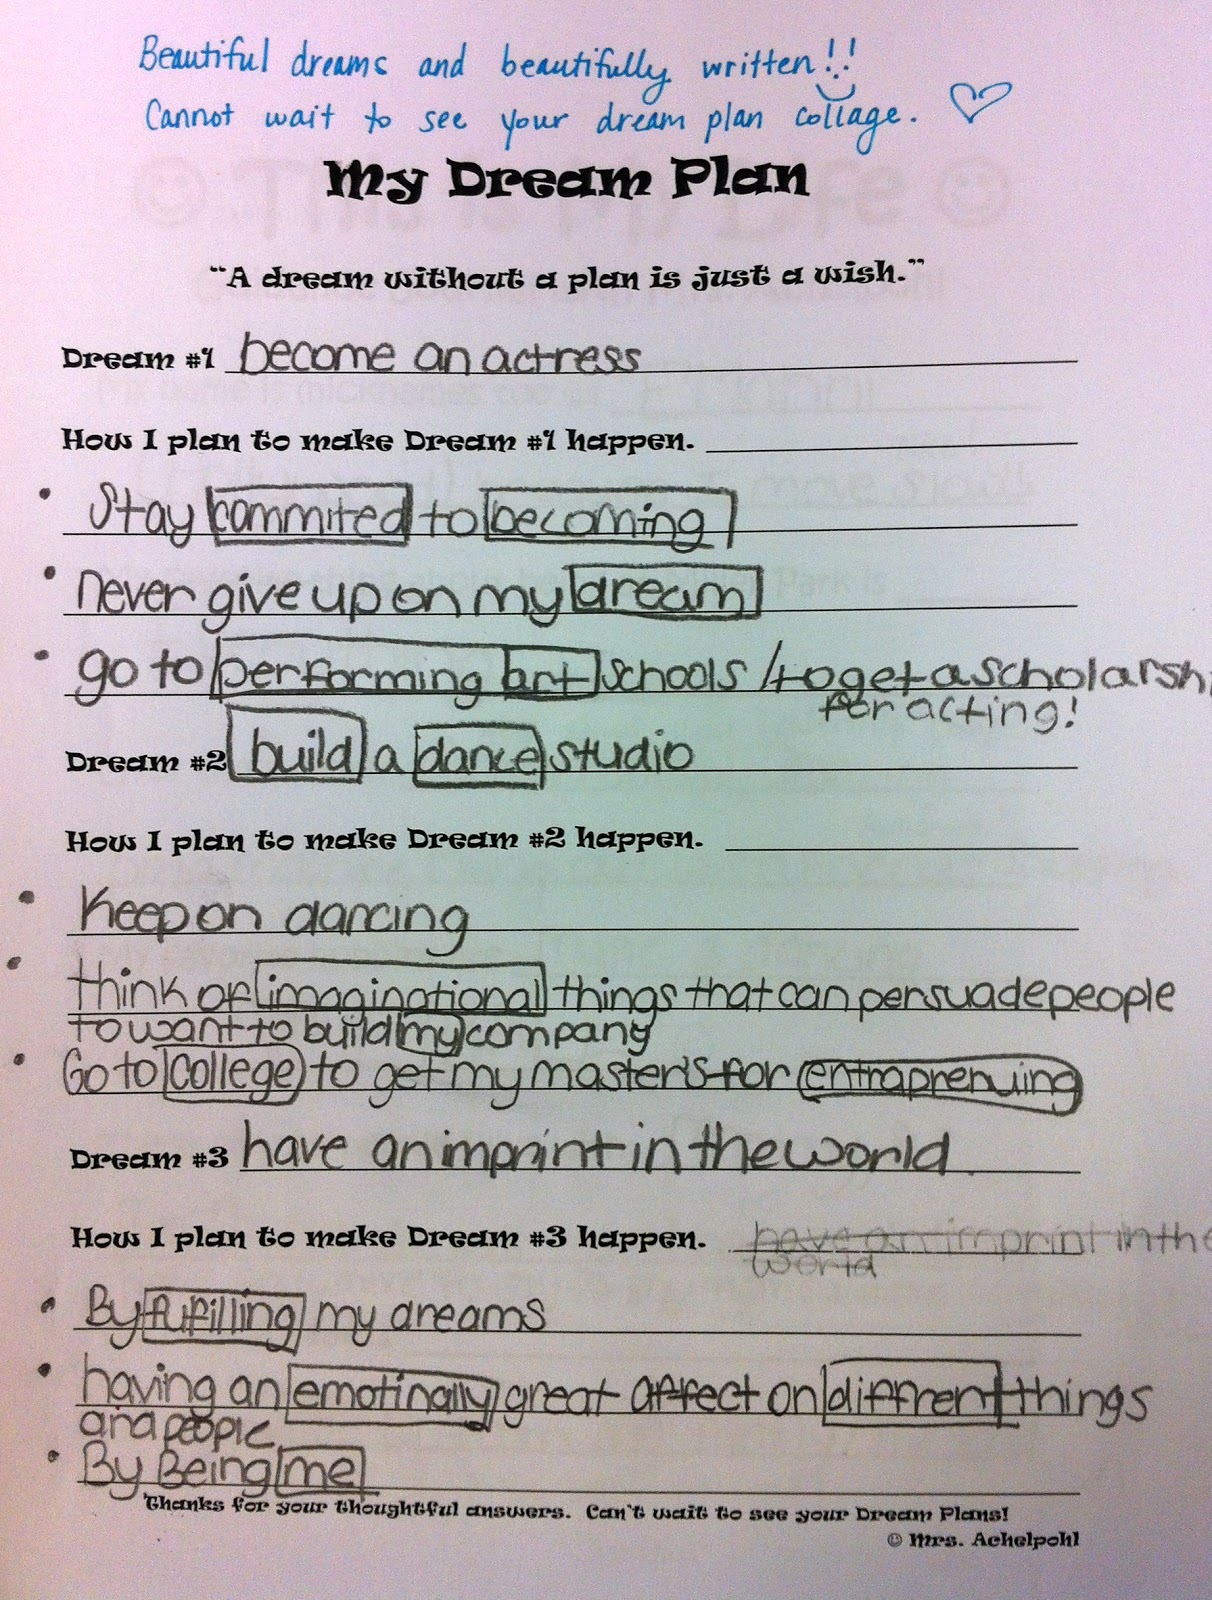 Beautiful dreams and beautifully written!!
Cannot wait to see your dream plan collage.
My Dream Plan
"A dream without a plan is just a wish."
Dream #1 become an actress
How I plan to make Dream #1 happen.
• Stay commited to becoming
• never give up on my dream
• go to performing art schools / to get a scholarsh
for acting!
Dream #2 build a dance studio
How I plan to make Dream #2 happen.
• Keep on dancing
• think of imaginational things that can persuade people
to want to build my company
• Go to college to get my master's for entraprenuing
Dream #3 have an imprint in the world.
How I plan to make Dream #3 happen. have an imprint in the
world
• By fufilling my dreams
• having an emotinally great affect on diffrent things
and people
• By Being me
Thanks for your thoughtful answers. Can't wait to see your Dream Plans!
© Mrs. Achelpohl